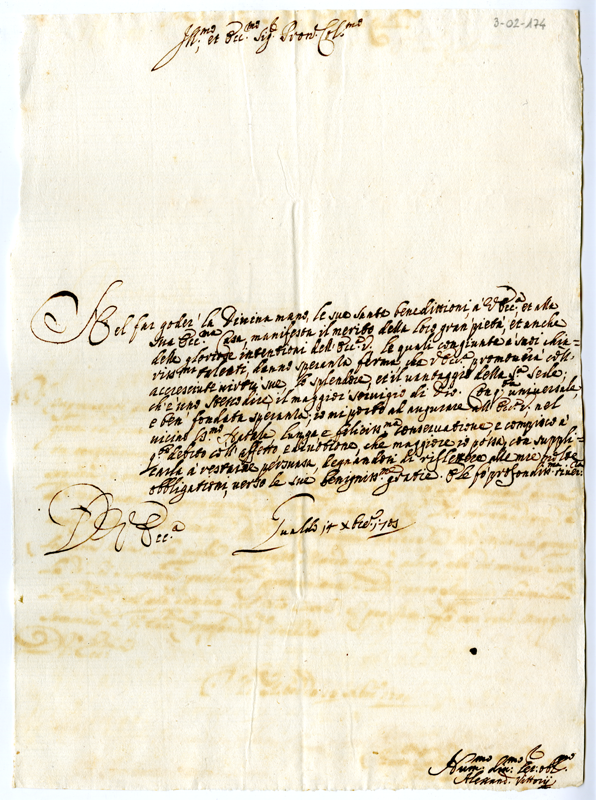 3-02-174
Ill.mo et Ecc.mo Sig.r Pron Col.mo
Nel far goder la Divina mano, le sue sante benedittioni à V Ecc.a et alla
sua Ecc.ma Casa, manifesta il merito della loro gran pietà, et anche
delle gloriose intentioni dell' Ecc. V. le quali congiunte à suoi chia-
rissimi talenti, danno speranza ferma che V Ecc.a promoverà coll'
accresciute virtù sue, lo splendore, et il vantaggio della S.ta Sede;
ch' è uno stesso dire, il maggior servigio di Dio. Con universale,
e ben fondata speranza, io mi porto al augurare all' Ecc. V. nel
vicino S.mo Natale, lunga e feliciss.ma conservatione, e compisco à
q.to debito coll' affetto e divotione, che maggiore io possa, con suppli-
carla à restarne persuasa, degnandosi di riflettere alle mie
obbligationi, verso le sue benigniss.me gratie. E le fò profondiss.ma river.za
D V Ecc.a
Gualdo 14 Xbre
Hum.mo div.mo ser. obl.mo
Alessand. Vittorij